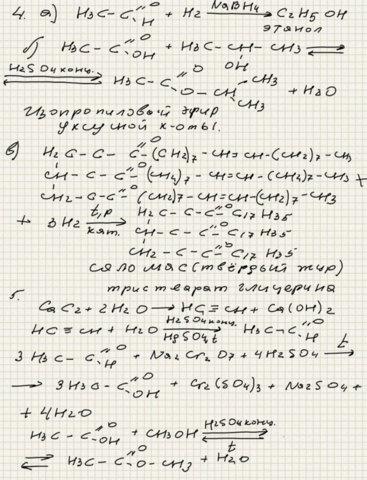 4. а) H3C–C(=O)H + H2 —NaBH4→ C2H5OH
этанол
б) H3C–C(=O)OH + H3C–CH(OH)–CH3 ⇌
⇌ H2SO4 конц. H3C–C(=O)O–CH(CH3)CH3 + H2O
Изопропиловый эфир
уксусной к-оты.
в) H2C–C–C(=O)–(CH2)7–CH=CH–(CH2)7–CH3
CH–C–C(=O)(CH2)7–CH=CH–(CH2)7–CH3 +
CH2–C–C(=O)(CH2)7–CH=CH–(CH2)7–CH3
+ 3H2 —t, p кат.→ H2C–C–C(=O)C17H35
CH–C–C(=O)C17H35
CH2–C–C(=O)C17H35
саломас (твёрдый жир)
тристеарат глицерина
5.
CaC2 + 2H2O → HC≡CH + Ca(OH)2
HC≡CH + H2O —H2SO4 конц. HgSO4, t→ H3C–C(=O)H
3H3C–C(=O)H + Na2Cr2O7 + 4H2SO4 —t→
→ 3H3C–C(=O)OH + Cr2(SO4)3 + Na2SO4 +
+ 4H2O
H3C–C(=O)OH + CH3OH ⇌ H2SO4 конц. t
⇌ H3C–C(=O)O–CH3 + H2O